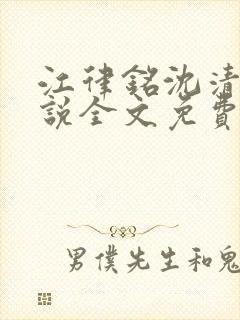 江律銘沈清
說全文免費
男僕先生和鬼